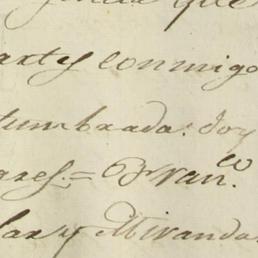 que
artes conmigo
tumbrada: doy
ares = Franco.
lar y Miranda